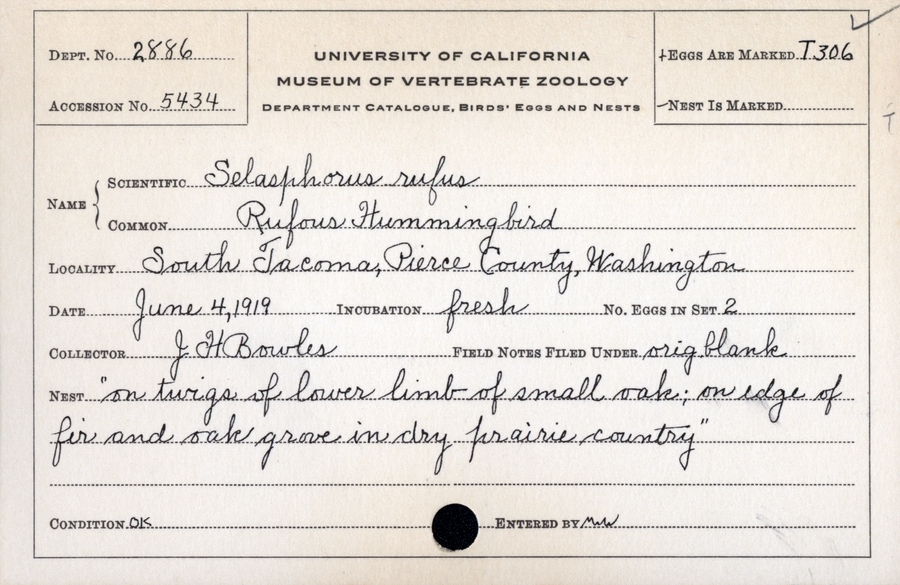 Dept. No. 2886
Accession No. 5434
UNIVERSITY OF CALIFORNIA
MUSEUM OF VERTEBRATE ZOOLOGY
Department Catalogue, Birds' Eggs and Nests
Eggs Are Marked T306
Nest Is Marked
Name { Scientific Selasphorus rufus
Common Rufous Hummingbird
Locality South Tacoma, Pierce County, Washington
Date June 4, 1919 Incubation fresh No. Eggs in Set 2
Collector J H Bowles Field Notes Filed Under orig. blank
Nest "on twigs of lower limb of small oak; on edge of
fir and oak grove in dry prairie country"
Condition OK Entered by